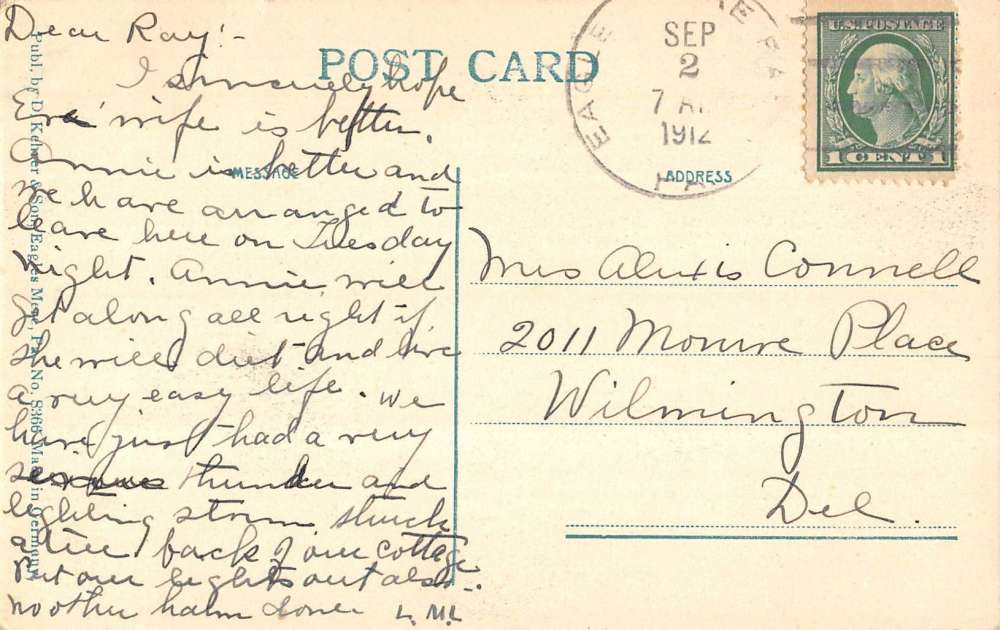 Dear Ray:-
I sincerely hope
Era' wife is better.
Annie is better and
we have arranged to
leave here on Tuesday
night. Annie will
get along all right if
she will diet and live
a very easy life. We
have just had a very
serious thunder and
lighting storm struck
a tree back of our cottage
Put our lights out also -
no other harm done. L. M. C
Publ. by D. Kehrer & Son, Eagles Mere, Pa. No. S366 Made in Germany
POST CARD
MESSAGE
ADDRESS
EAGLE
SEP
2
7 A
1912
PA
U.S. POSTAGE
1 CENT 1
Mrs Alexis Connell
2011 Monroe Place
Wilmington
Del.